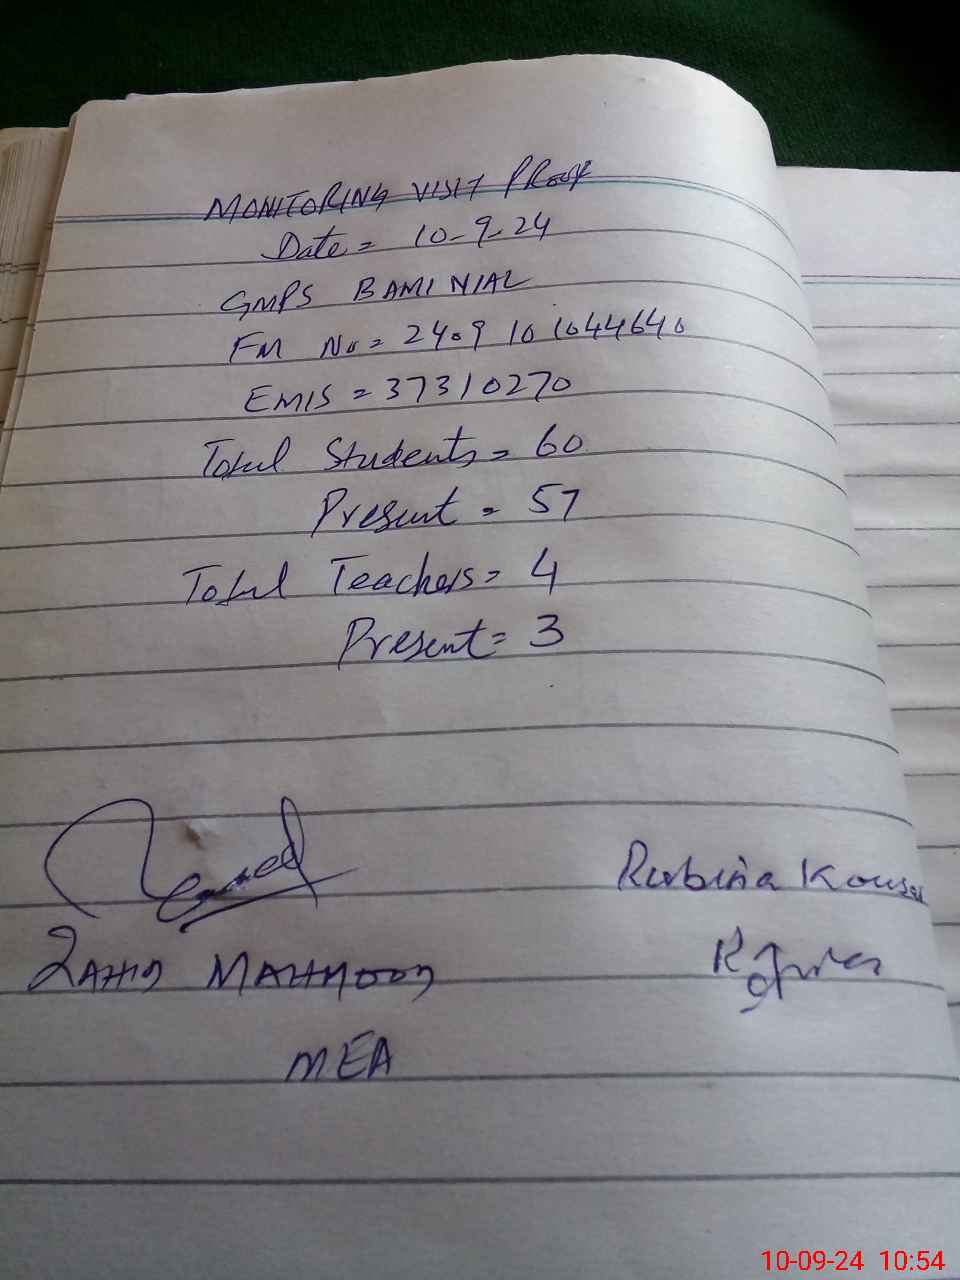 MONITORING VISIT PROOF
Date = 10-9-24
GMPS BAMINIAL
FM No = 2409101044640
EMIS = 37310270
Total Students = 60
Present = 57
Total Teachers = 4
Present = 3
Rubina Kousar
ZAHID MAHMOOD
MEA
10-09-24 10:54